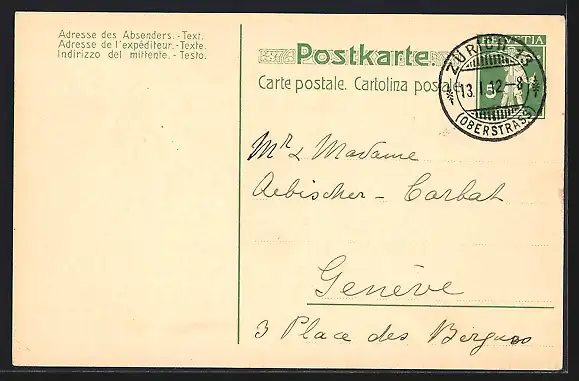 Adresse des Absenders.-Text.
Adresse de l'expéditeur.-Texte.
Indirizzo del mittente.-Testo.
Postkarte.
Carte postale. Cartolina postale.
HELVETIA
5
ZÜRICH 33
13. I. 12.–8
(OBERSTRASS)
Mr & Madame
Aebischer - Corbat
Genève
3 Place des Bergues